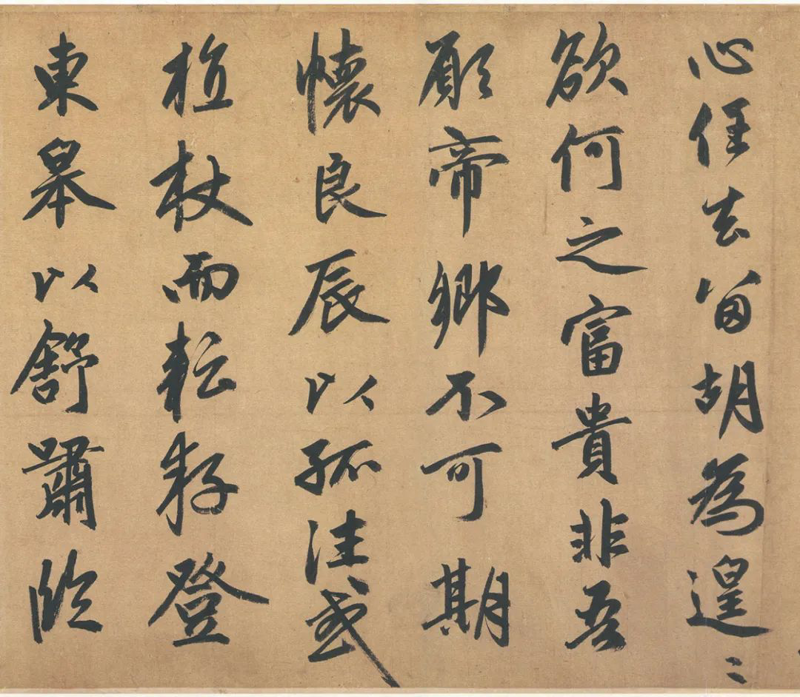 心任去留胡為遑〻
欲何之富貴非吾
願帝鄉不可期
懷良辰以孤往或
植杖而耘耔登
東皋以舒嘯臨